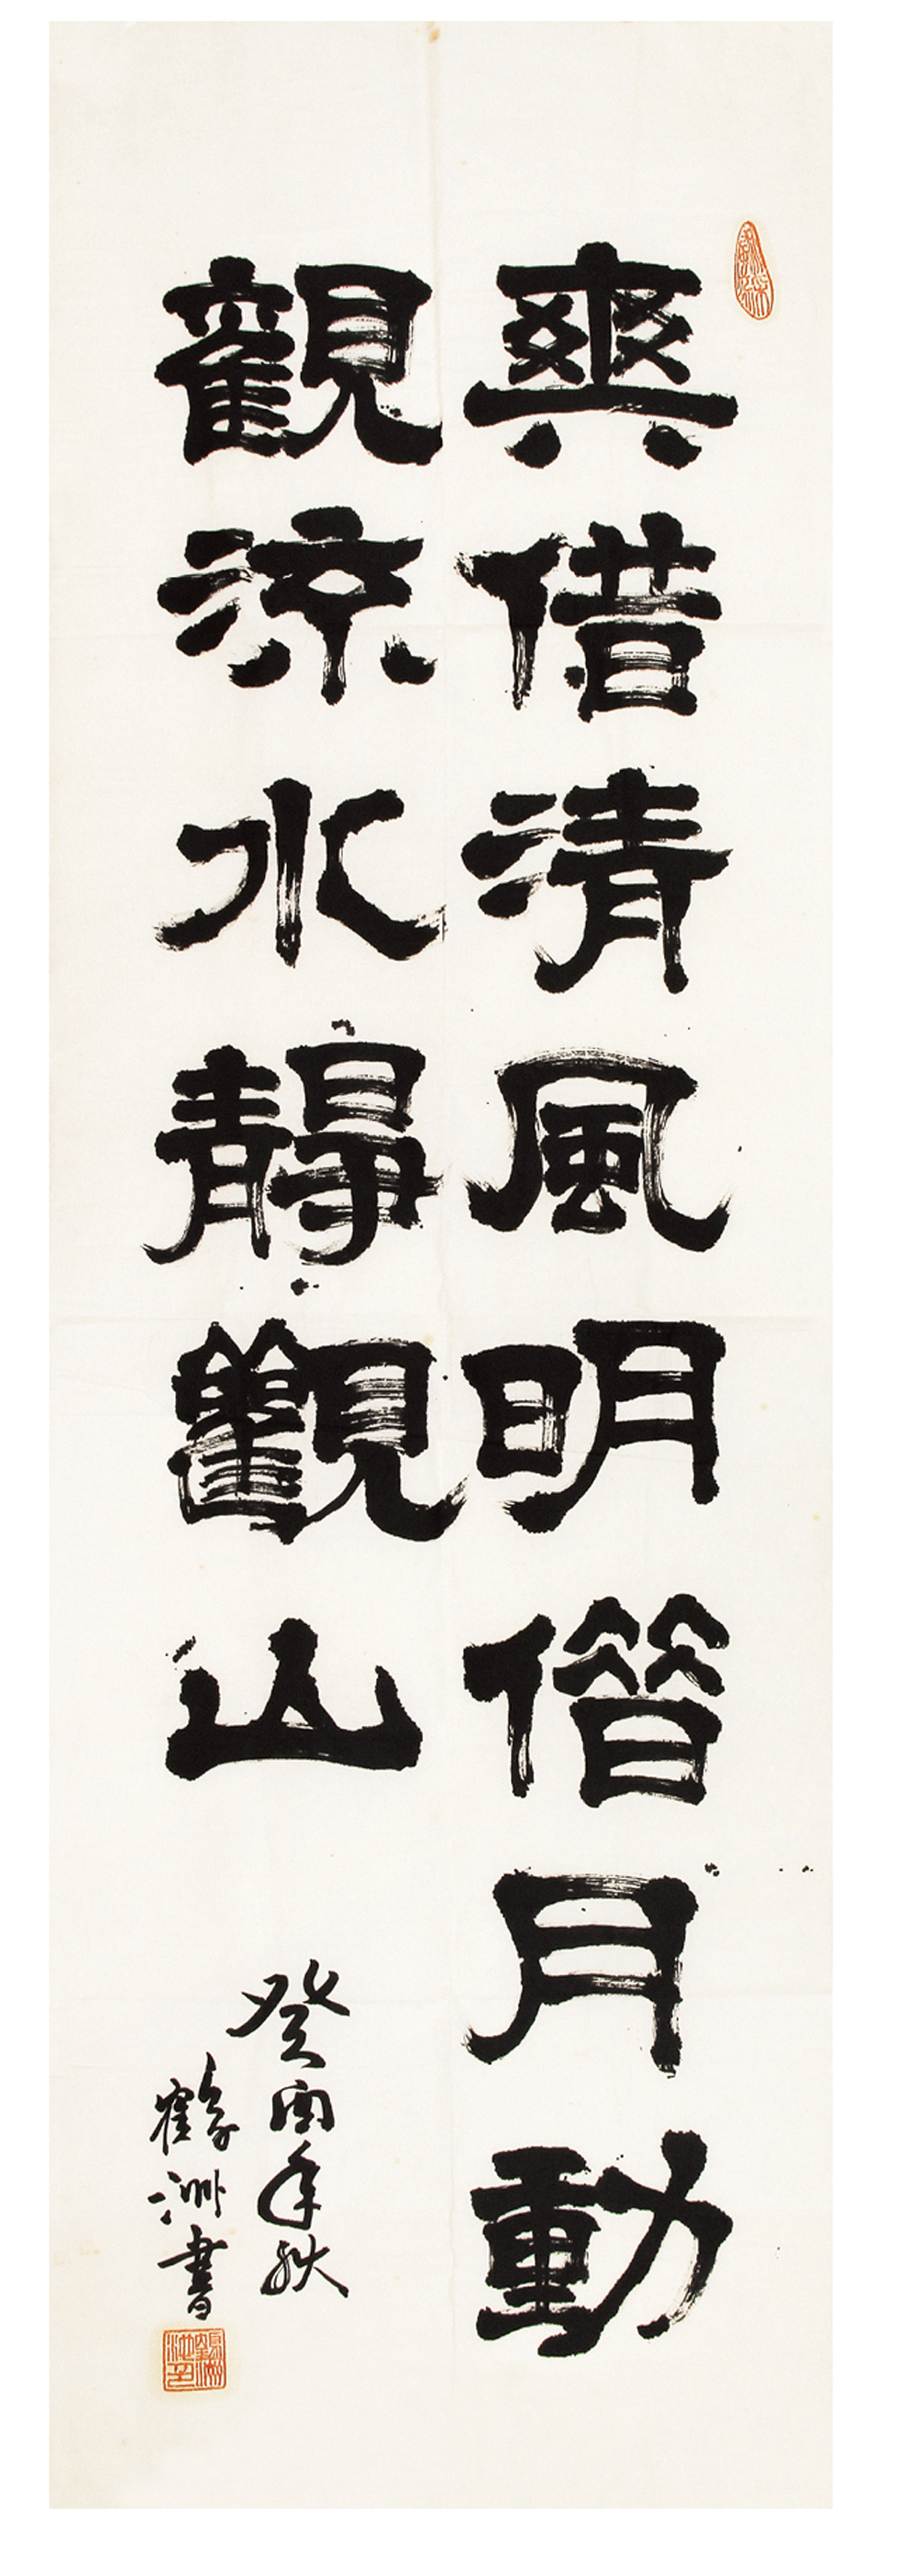 爽借清風明借月動
觀流水靜觀山
癸酉年秋
鶴洲書